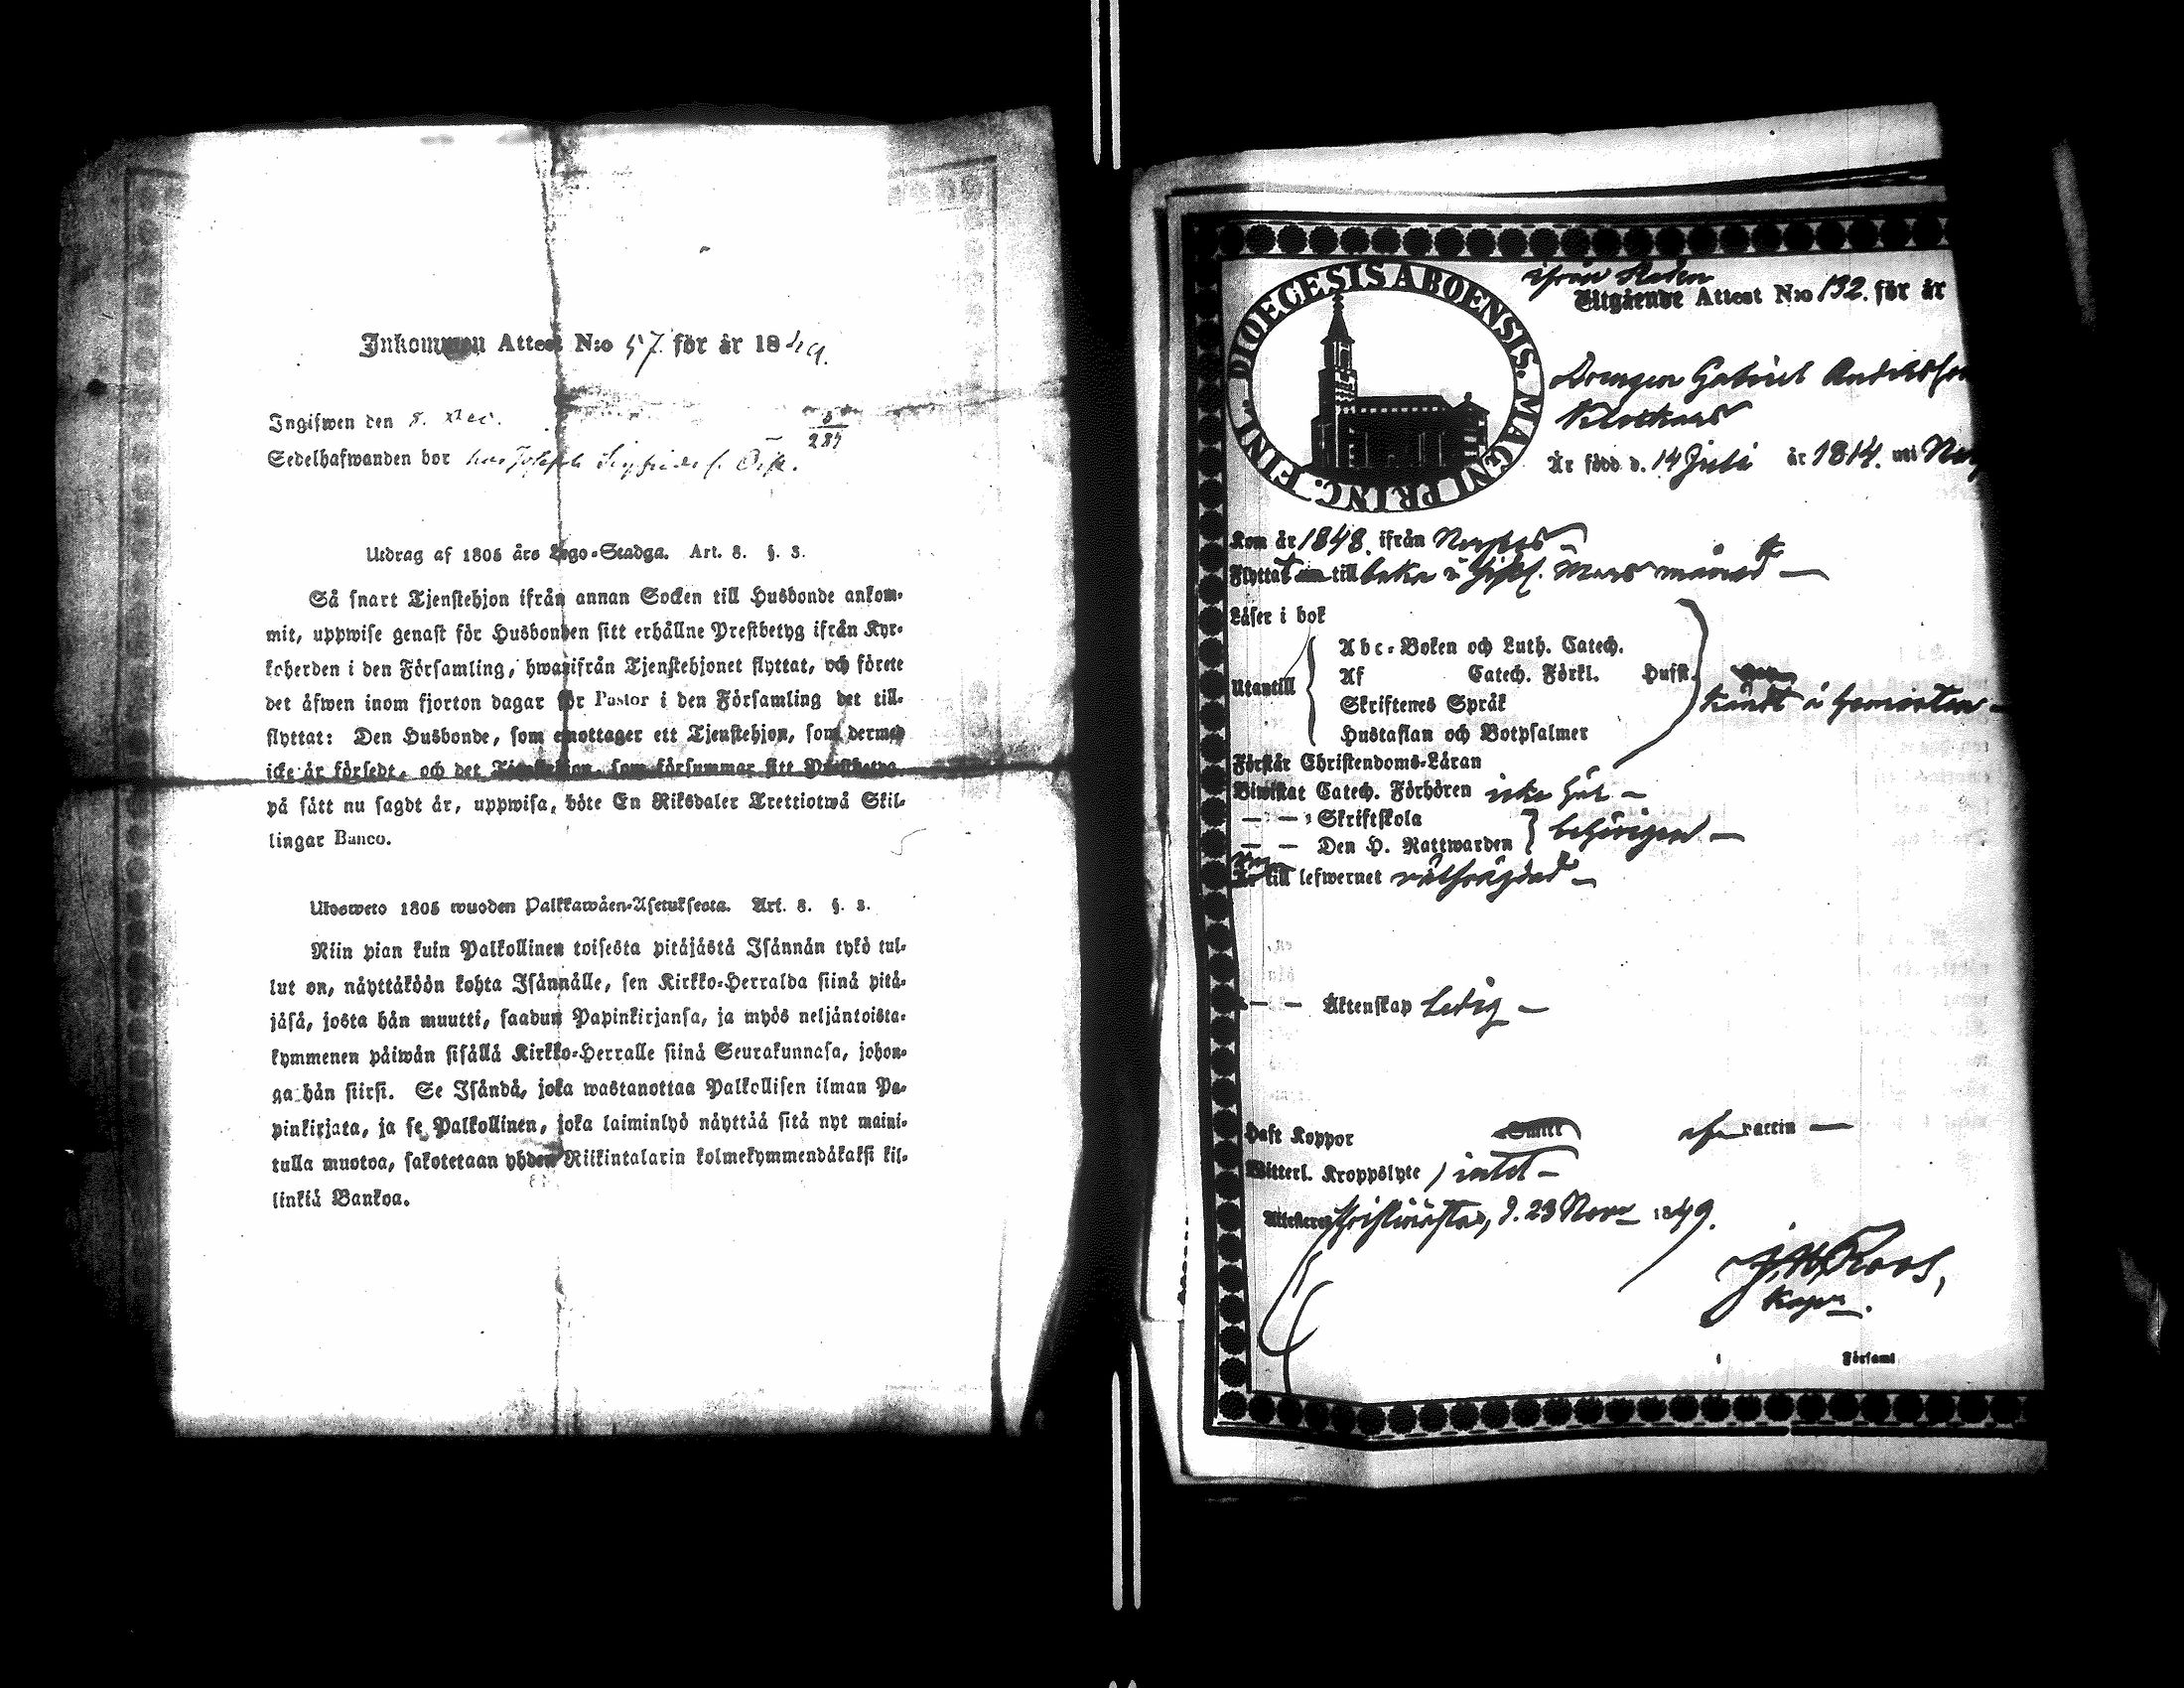 Inkommen Attest N:o 57. för år 1849.
Ingifwen den 8. xbec.
5
285
Sedelhafwanden bor hos Joseph Sigfrids s.
Utdrag af 1805 års Lego-Stadga. Art. 8. §. 3.
Så snart Tjenstehjon ifrån annan Socken till Husbonde ankom-
mit, uppwise genast för Husbonden sitt erhållne Prestbetyg ifrån Kyr-
koherden i den Församling, hwarifrån Tjenstehjonet flyttat, och förete
det äfwen inom fjorton dagar för Pastor i den Församling det till-
flyttat: Den Husbonde, som emottager ett Tjenstehjon, som dermed
icke är försedt, och det Tjenstehjon, som försummar sitt Prestbetyg,
på sätt nu sagdt är, uppwisa, böte En Riksdaler Trettiotwå Skil-
lingar Banco.
Ulosweto 1805 wuoden Palkkawäen-Asetuksesta. Art. 8. §. 3.
Niin pian kuin Palkollinen toisesta pitäjästä Isännän tykö tul-
lut on, näyttäköön kohta Isännälle, sen Kirkko-Herralda siinä pitä-
jäsä, josta hän muutti, saadun Papinkirjansa, ja myös neljäntoista-
kymmenen päiwän sisällä Kirkko-Herralle siinä Seurakunnasa, johon-
ga hän siirsi. Se Isändä, joka wastanottaa Palkollisen ilman Pa-
pinkirjata, ja se Palkollinen, joka laiminlyö näyttää sitä nyt maini-
tulla muotoa, sakotetaan yhden Riikintalarin kolmekymmendäkaksi kil-
linkiä Bankoa.
DIOECESIS ABOENSIS. MAGNI PRINC. FINL.
ifrån Staden
Utgående Attest N:o 132. för år
Drengen Gabriel Andersson
Klockars
Är född d. 14 Juli år 1814. uti
Kom år 1848. ifrån Nerpes
Flyttat till baka i Mars månad
Läser i bok
Abc-Boken och Luth. Catech.
Utantill
Af Catech. Förkl. Hust.
Skriftenes Språk
Hustaflan och Botpsalmer
kändt i hemorten
Förstår Christendoms-Läran
Biwistat Catech. Förhören icke här
— — Skriftskola
— — Den H. Nattwarden behörigen
Är till lefwernet oklanderlig
— — Äktenskap ledig
Haft Koppor
Witterl. Kroppslyte intet
Attesterar d. 23 Nov 1849.
J. W. Roos,
Kapn.
i Församl.